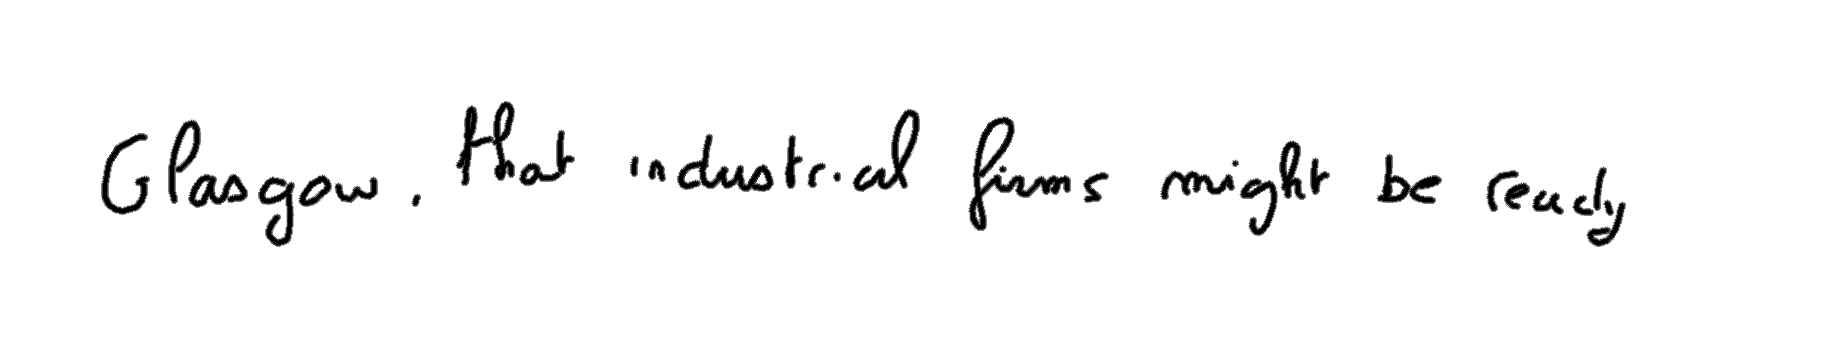 Glasgow, that industrial firms might be ready